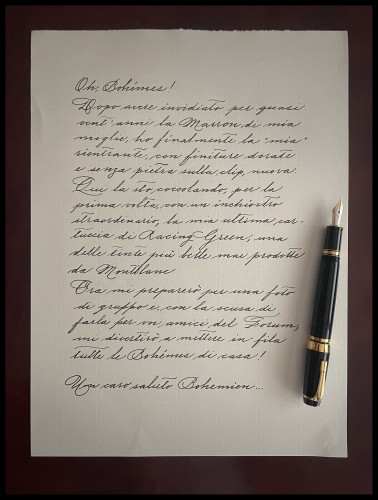 Oh, Bohémes!
Dopo avere invidiato per quasi
vent'anni la Marron, di mia
moglie, ho finalmente la "mia"
rientrante, con finiture dorate
e senza pietra sulla clip, nuova.
Qui la sto coccolando, per la
prima volta, con un inchiostro
straordinario, la mia ultima car-
tuccia di Racing Green, una
delle tinte più belle mai prodotte
da Montblanc
Ora mi preparerò per una foto
di gruppo e, con la scusa di
farla per voi, amici del Forum,
mi divertirò a mettere in fila
tutte le Bohémes, di casa!
Un caro saluto Bohemien...